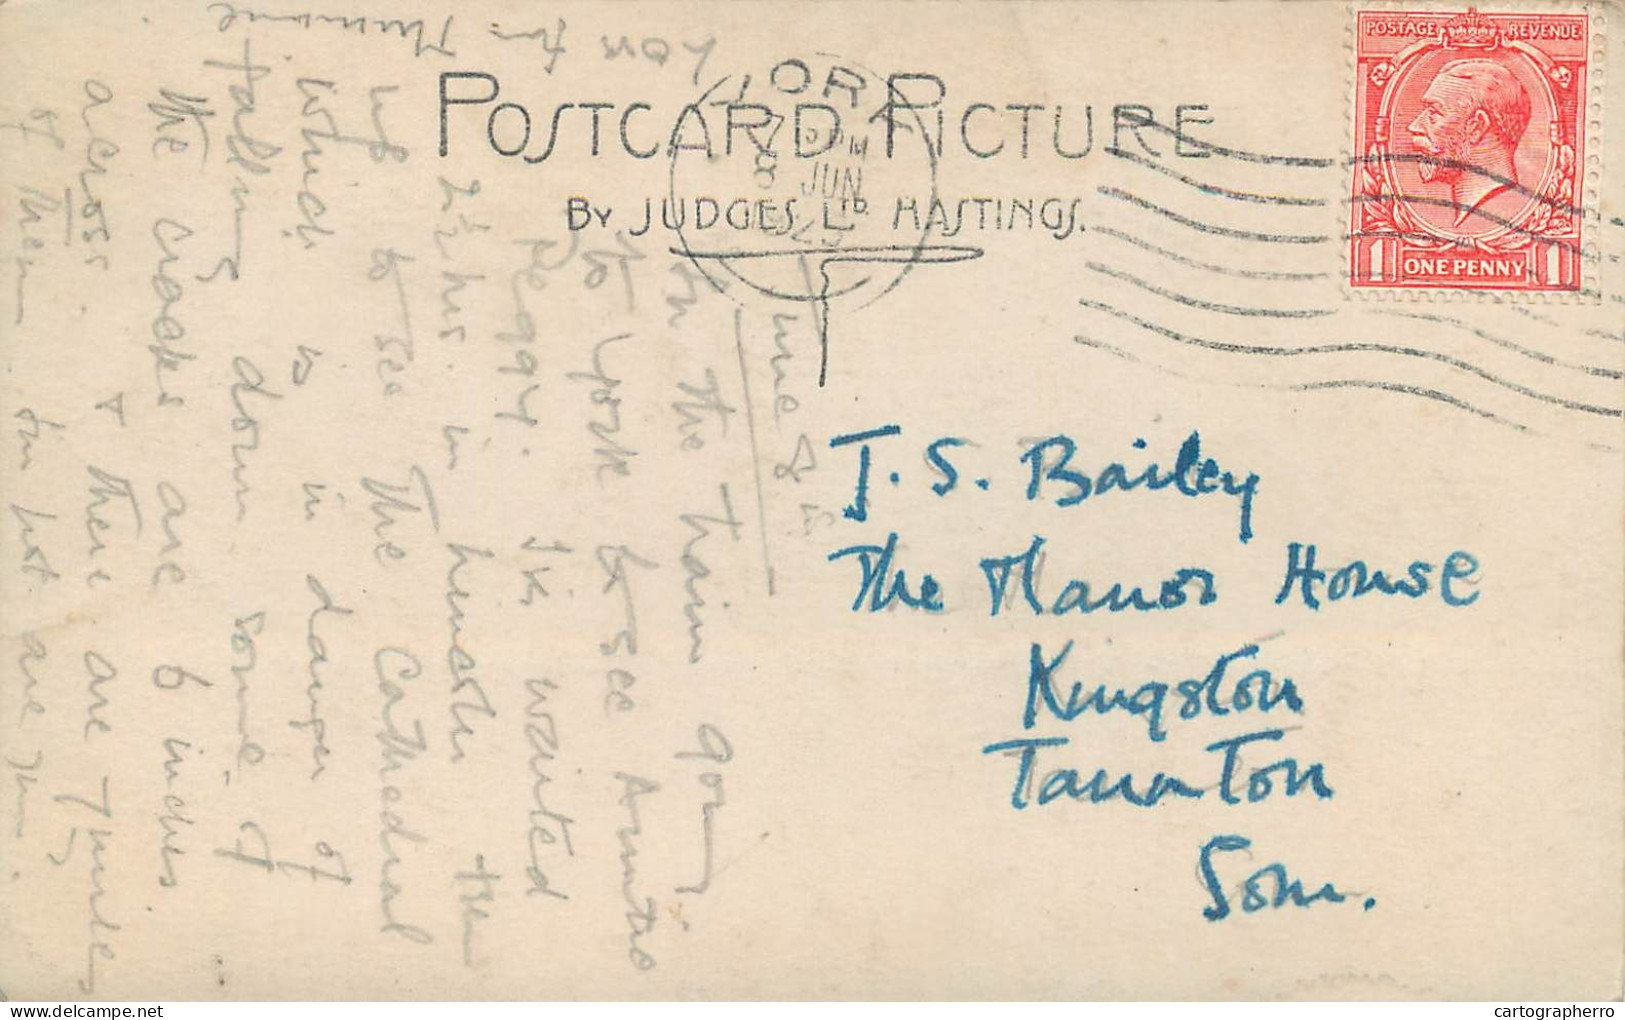 POSTAGE REVENUE
ONE PENNY
1 1
YORK
7 PM
8 JUN
POSTCARD PICTURE
BY JUDGES LTD HASTINGS.
J. S. Bailey
The Manor House
Kingston
Taunton
Som.
June 8th
In the train going
to York to see Auntie
Peggy. I've waited
2½ hrs in
up to see The Cathedral
which is in danger of
falling down some of
the cracks are 6 inches
across. & there are 7 miles
of them.
cartographerro